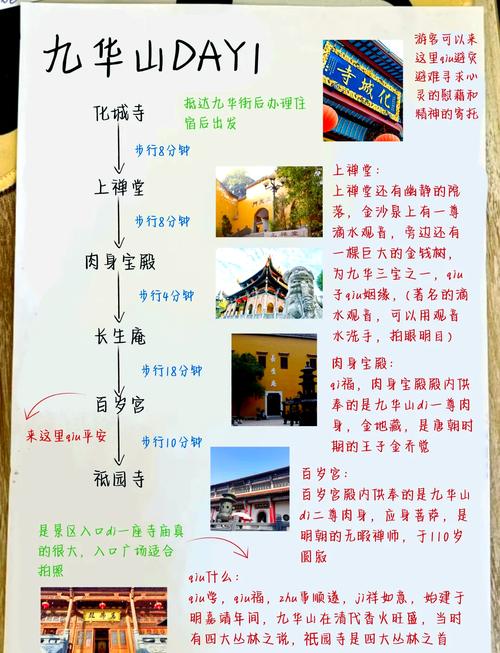 九华山DAY1
化城寺
抵达九华街后办理住
宿后出发
步行8分钟
上禅堂
步行8分钟
肉身宝殿
步行4分钟
长生庵
步行18分钟
百岁宫
来这里qiu平安
步行10分钟
祇园寺
是景区入口di一座寺庙真
的很大，入口广场适合
拍照
寺城化
游客可以来
这里qiu避灾
避难寻求心
灵的慰藉和
精神的寄托
上禅堂：
上禅堂还有幽静的院
落，金沙泉上有一尊
滴水观音，旁边还有
一棵巨大的金钱树，
为九华三宝之一，qiu
子qiu姻缘，（著名的滴
水观音，可以用观音
水洗手，拍眼明目）
长生庵
肉身宝殿：
qi福，肉身宝殿殿内供
奉的是九华山di一尊肉
身，金地藏，是唐朝时
期的王子金乔觉
百岁宫：
百岁宫殿内供奉的是九华山
di二尊肉身，应身菩萨，是
明朝的无暇禅师，于110岁
圆寂
qiu什么：
qiu学，qiu福，zhu事顺遂，ji祥如意，始建于
明嘉靖年间，九华山在清代香火旺盛，当时
有四大丛林之说，祇园寺是四大丛林之首